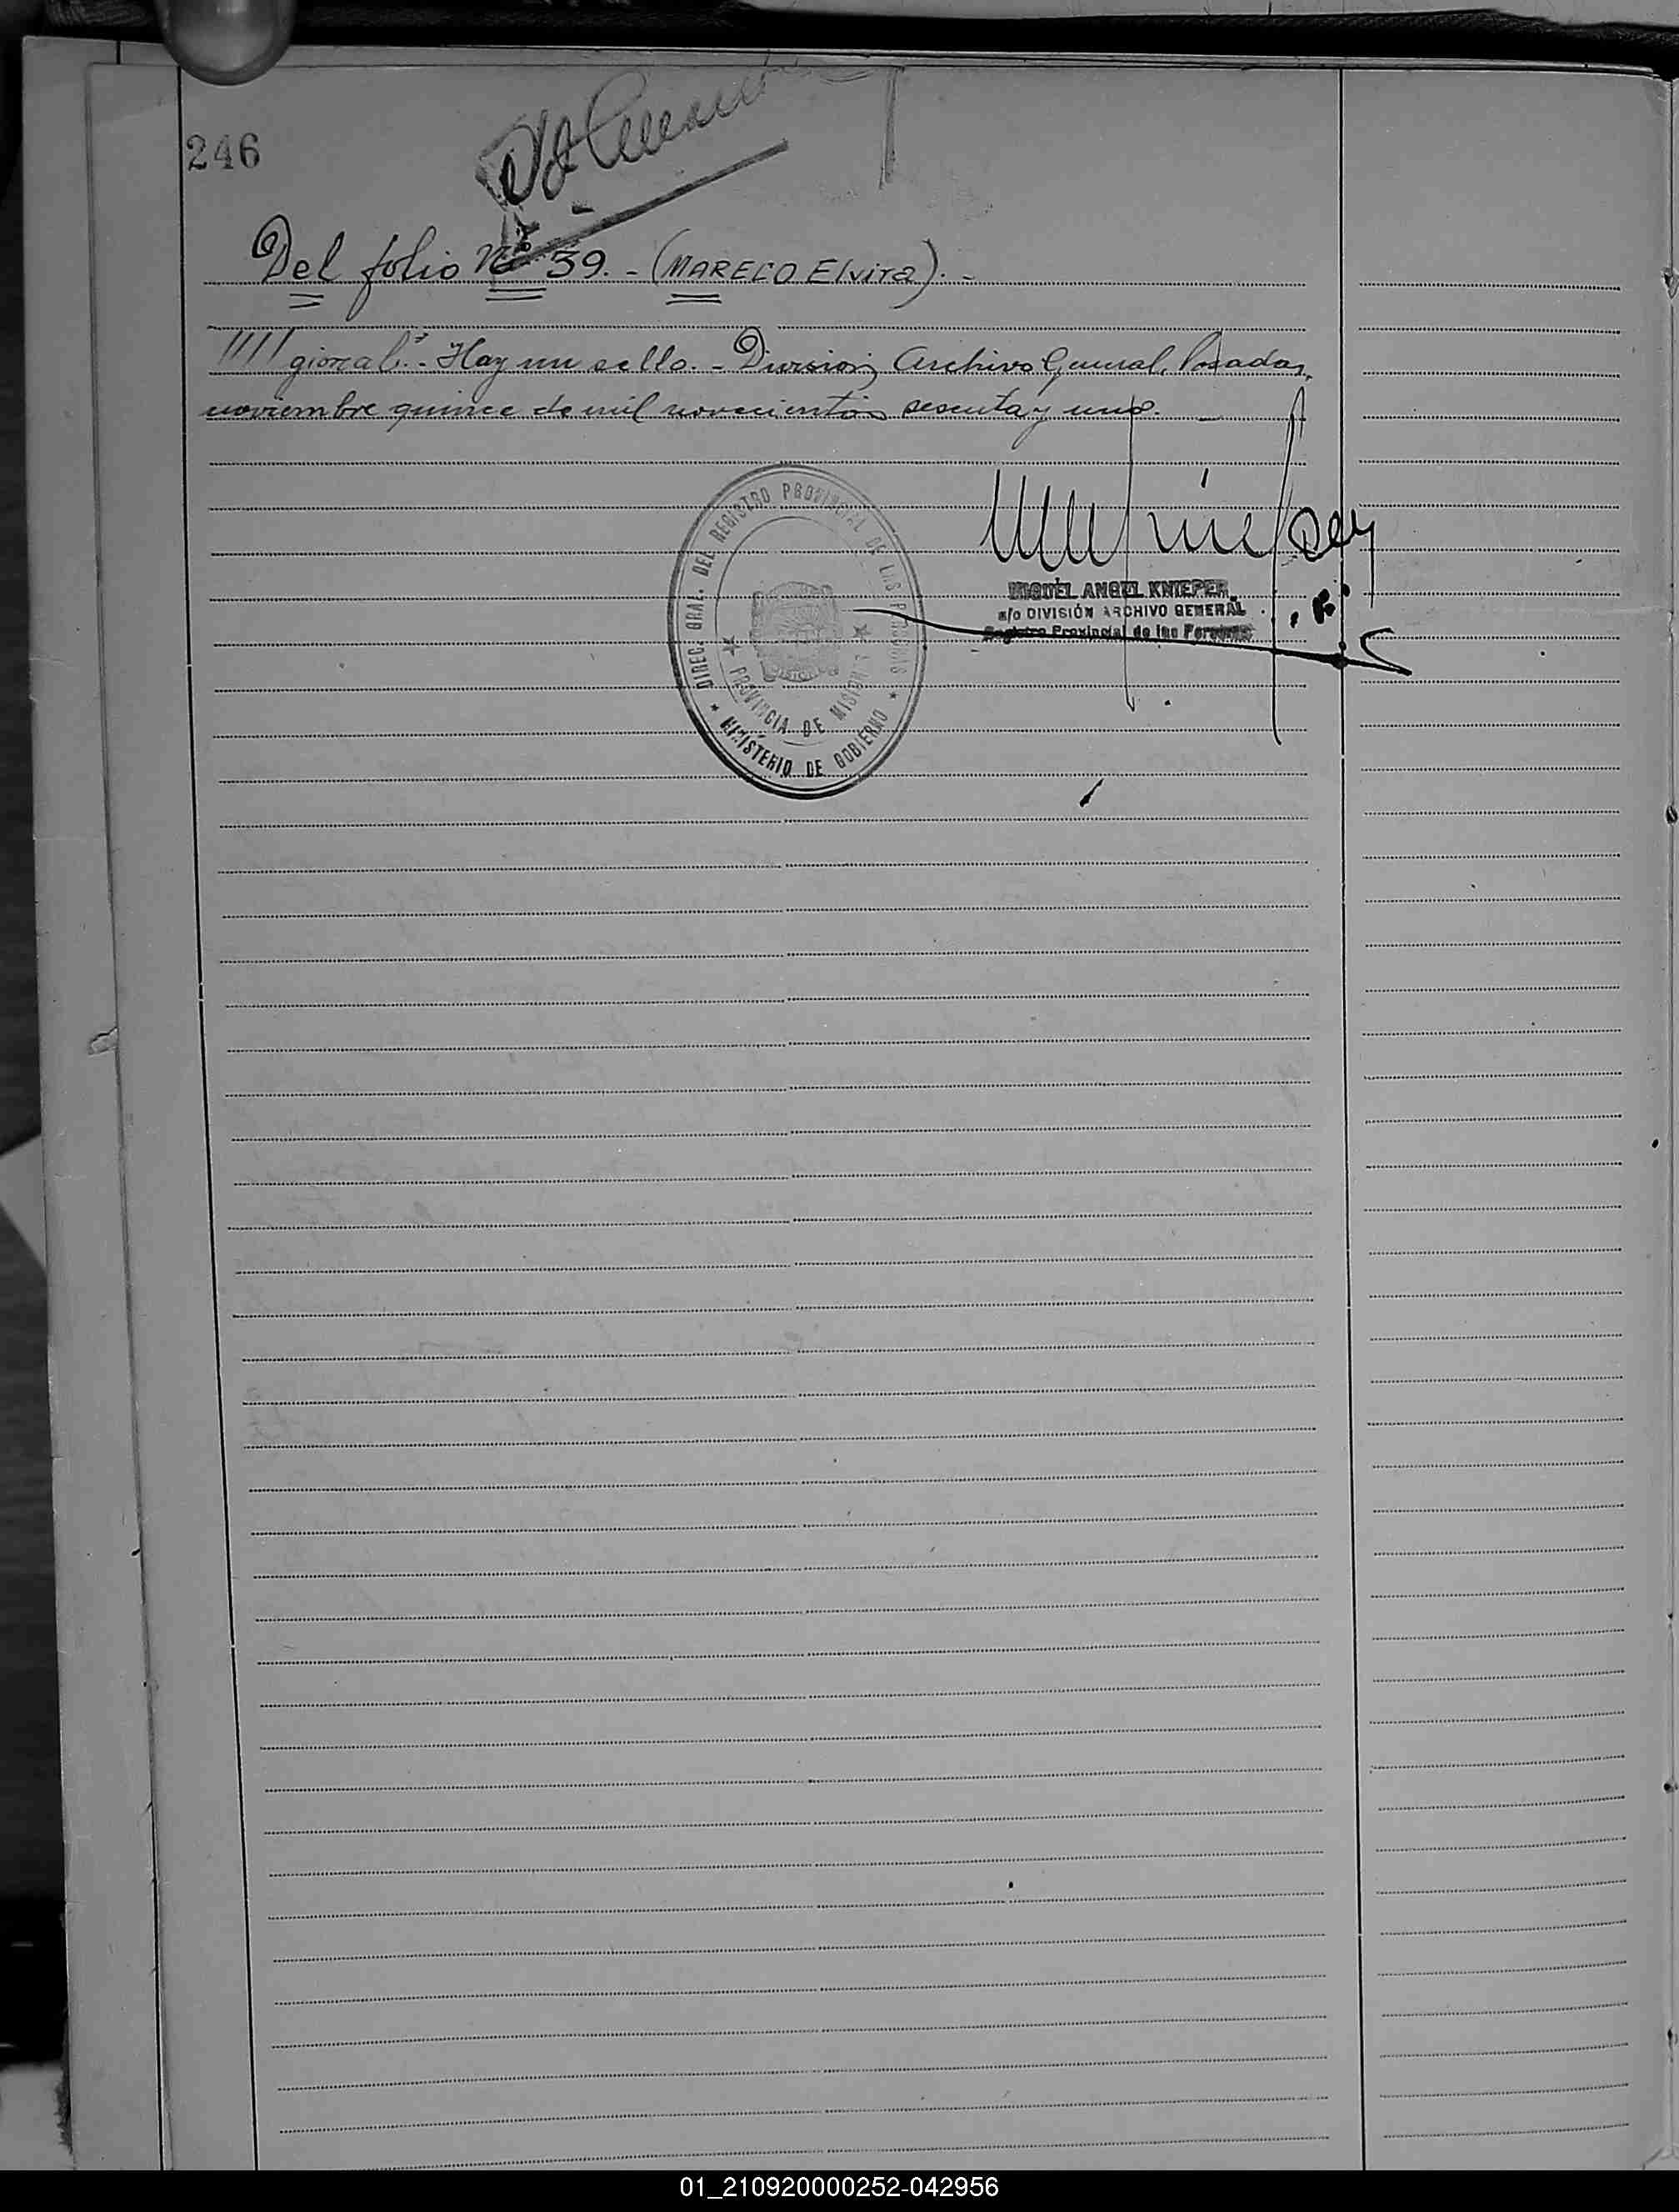 246
Del folio Nº 39. - (MARECO Elvira). -
//// gional". - Hay un sello. - División Archivo General, Posadas,
noviembre quince de mil novecientos sesenta y uno. -
DIREC. GRAL. DEL REGISTRO PROVINCIAL DE LAS PERSONAS
PROVINCIA DE MISIONES
MINISTERIO DE GOBIERNO
MIGUEL ANGEL KNIEPER
a/c DIVISIÓN ARCHIVO GENERAL
Registro Provincial de las Personas
01_210920000252-042956